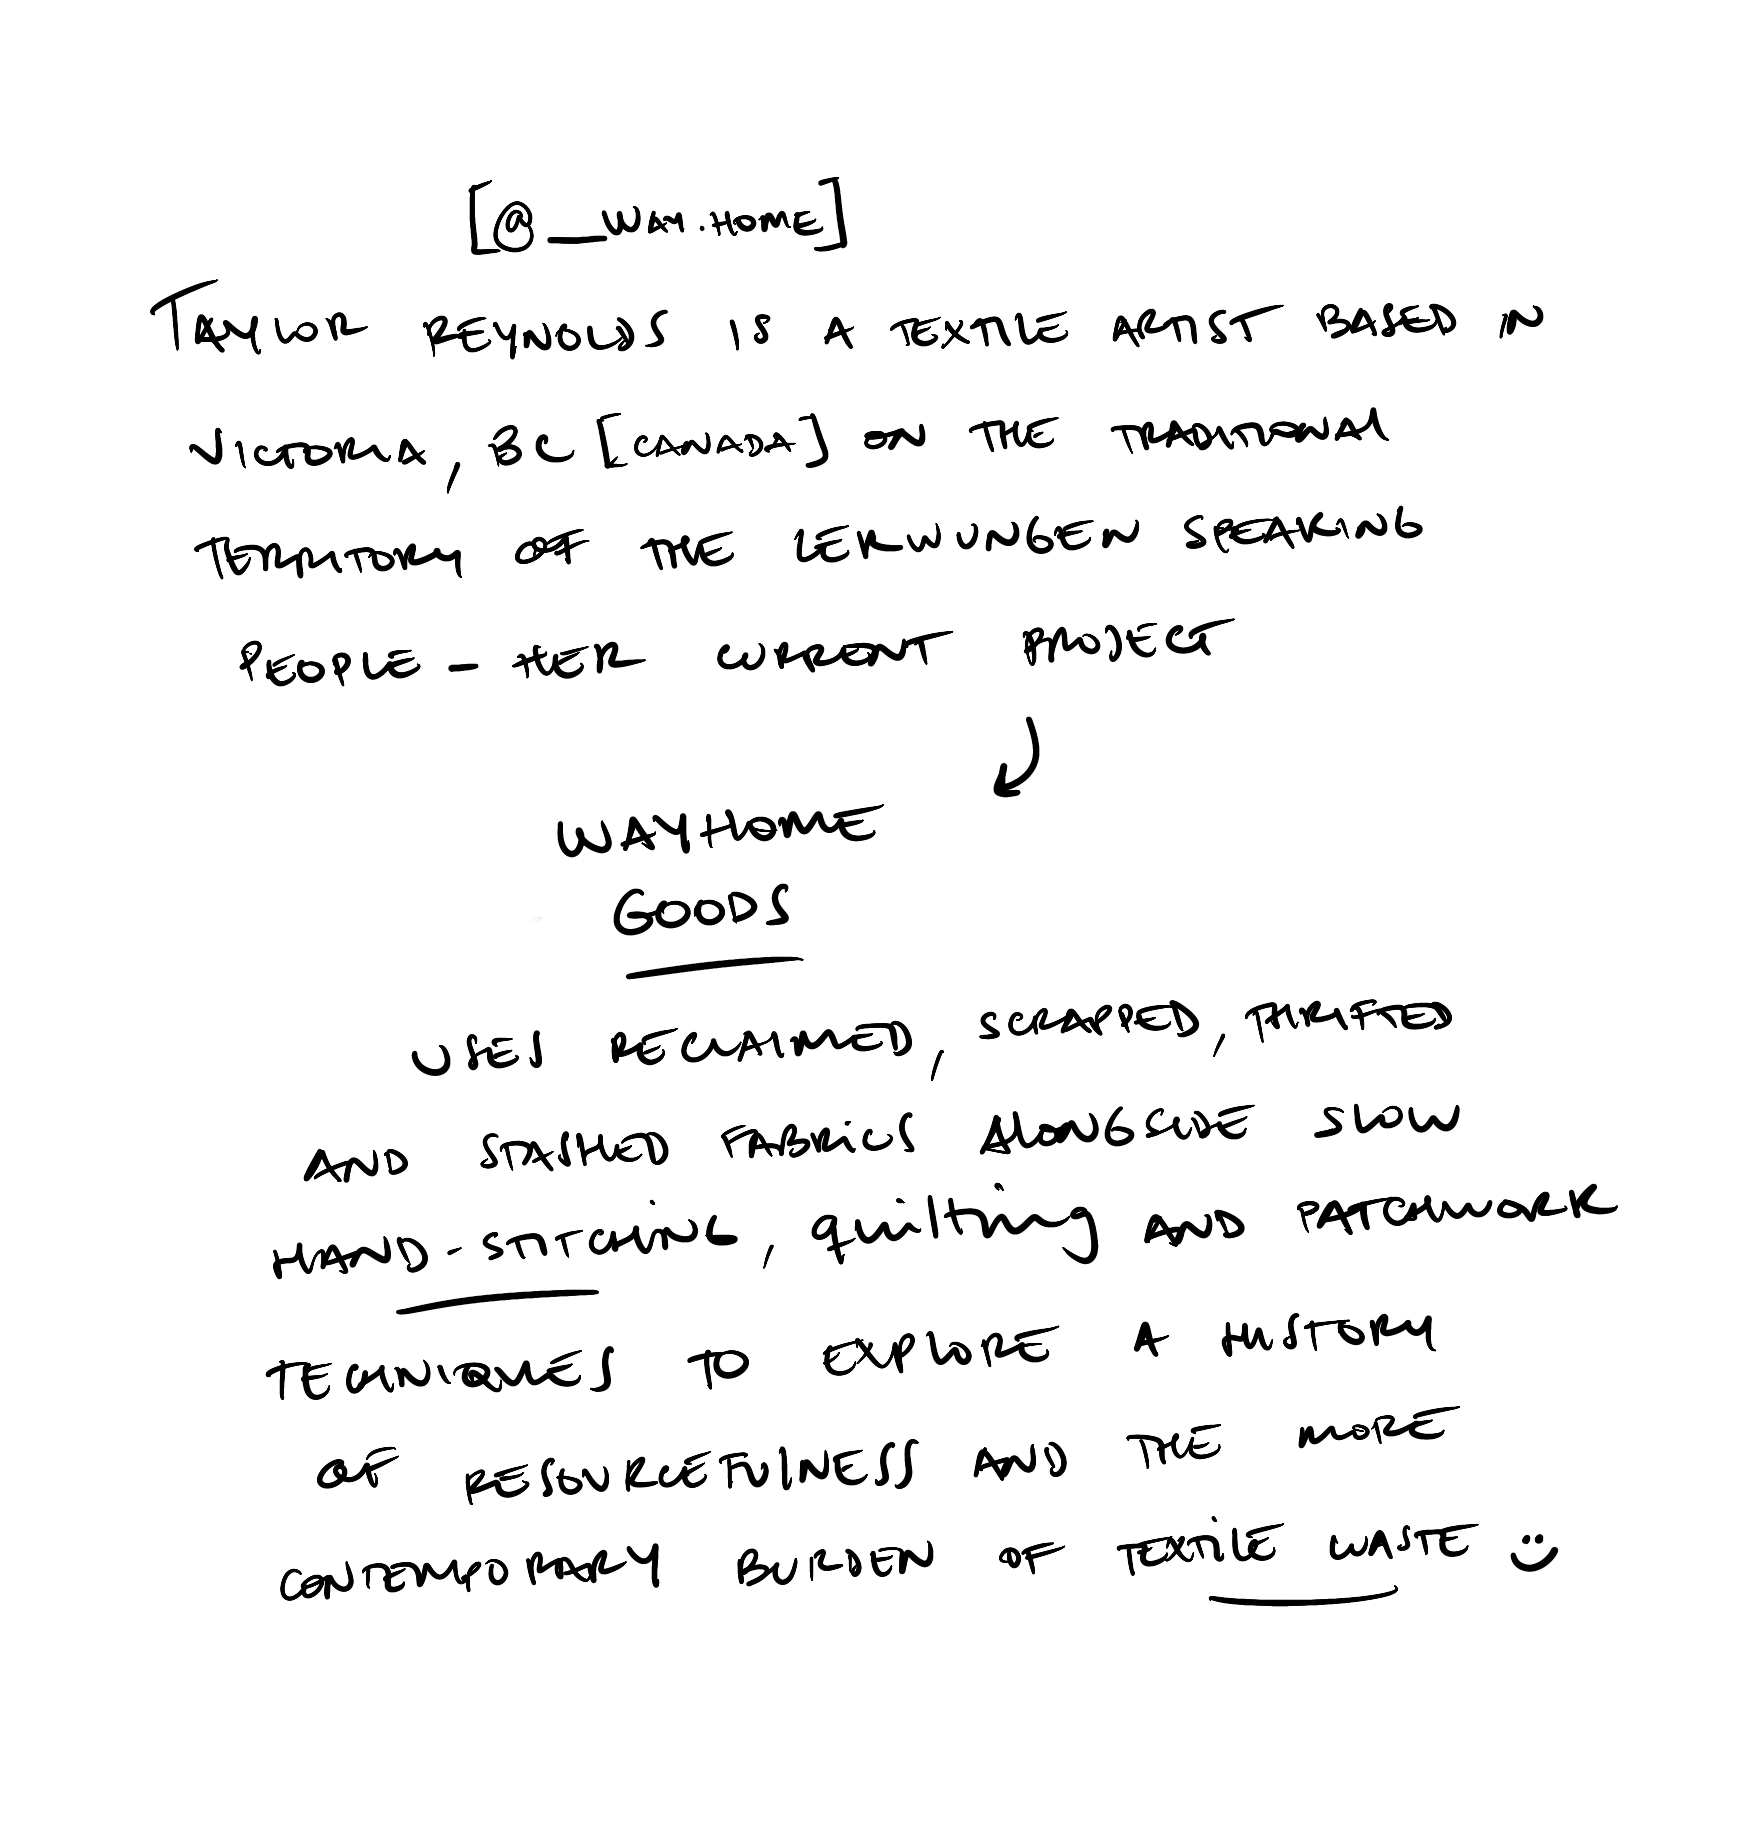 [@__WAY.HOME]
TAYLOR REYNOLDS IS A TEXTILE ARTIST BASED IN
VICTORIA, BC [CANADA] ON THE TRADITIONAL
TERRITORY OF THE LEKWUNGEN SPEAKING
PEOPLE - HER CURRENT PROJECT
WAYHOME
GOODS
USES RECLAIMED, SCRAPPED, THRIFTED
AND STASHED FABRICS ALONGSIDE SLOW
HAND-STITCHING, quilting AND PATCHWORK
TECHNIQUES TO EXPLORE A HISTORY
OF RESOURCEFULNESS AND THE MORE
CONTEMPORARY BURDEN OF TEXTILE WASTE